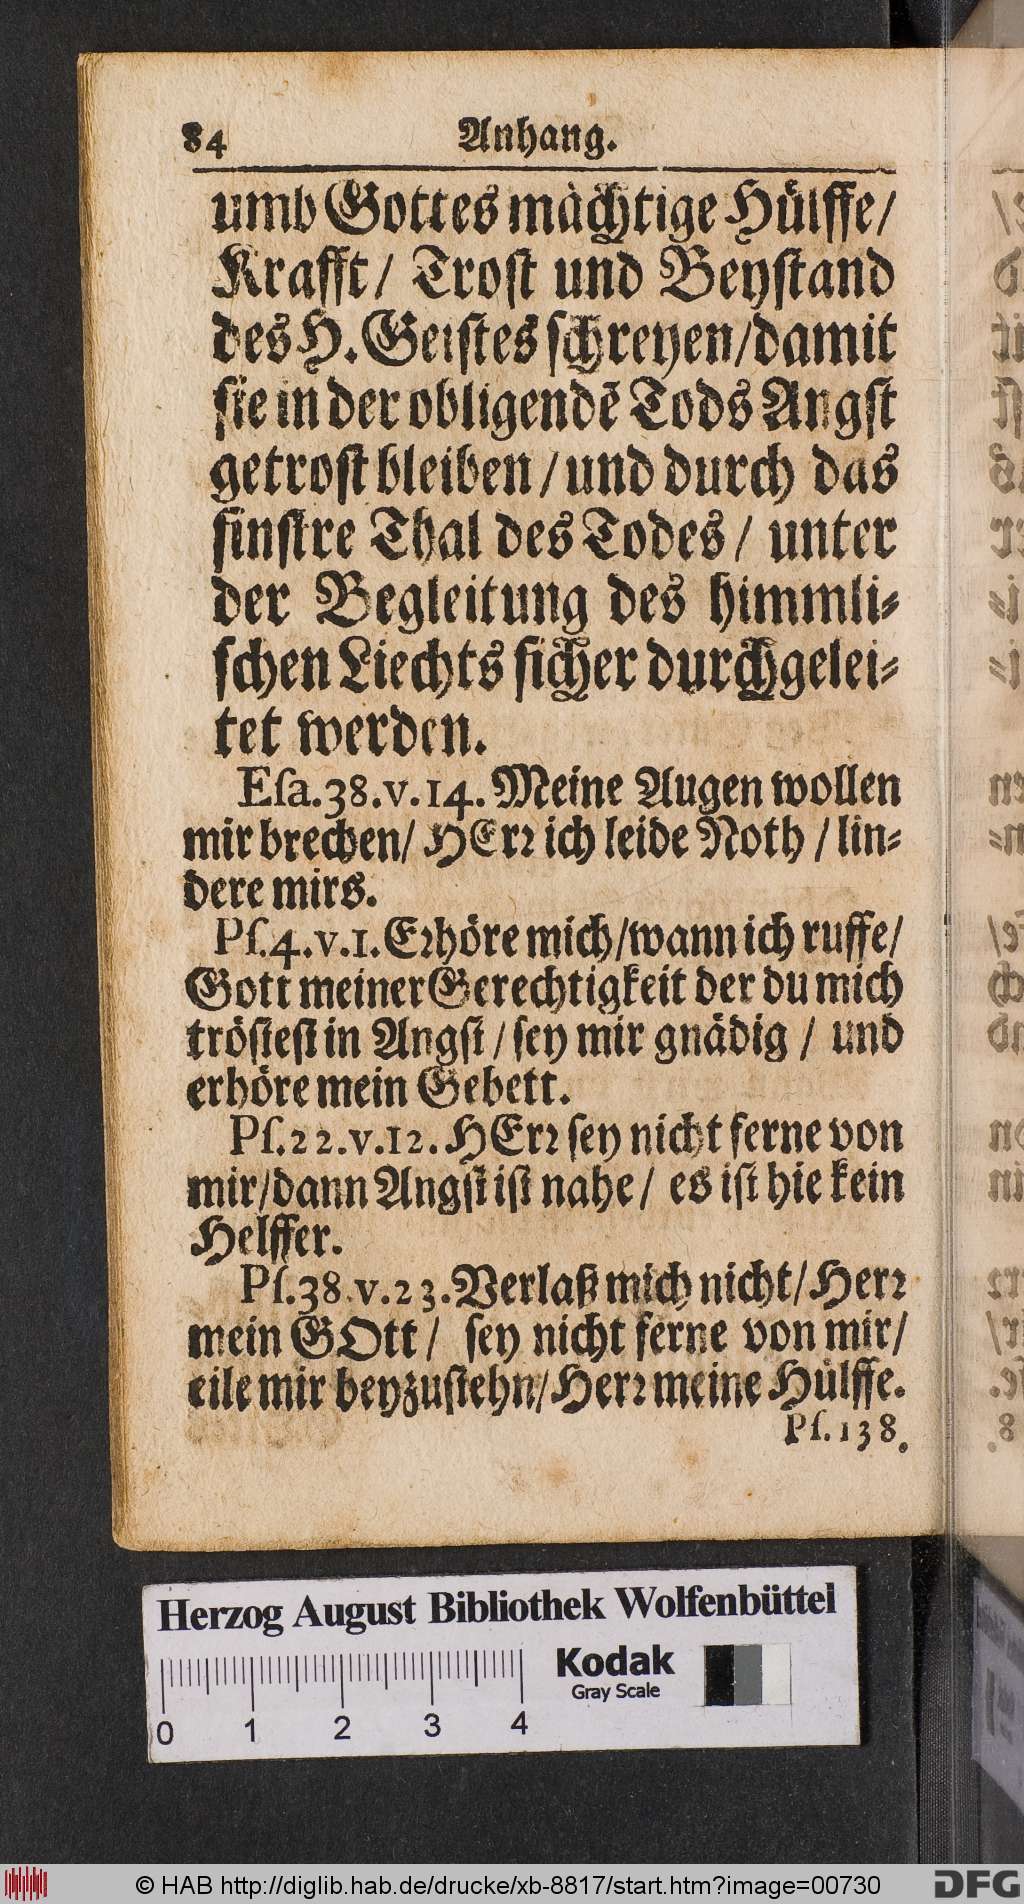 84 Anhang.
umb Gottes mächtige Hülffe/
Krafft/ Trost und Beystand
des H. Geistes schreyen/damit
sie in der obligendẽ Tods Angst
getrost bleiben/und durch das
finstre Thal des Todes/ unter
der Begleitung des himmli-
schen Liechts sicher durchgelei-
tet werden.
Esa.38.v.14. Meine Augen wollen
mir brechen/ HErr ich leide Noth / lin-
dere mirs.
Ps.4.v.1. Erhöre mich/wann ich ruffe/
Gott meiner Gerechtigkeit der du mich
tröstest in Angst / sey mir gnädig / und
erhöre mein Gebett.
Ps.22.v.12. HErr sey nicht ferne von
mir/dann Angst ist nahe/ es ist hie kein
Helffer.
Ps.38.v.23. Verlaß mich nicht/Herr
mein GOtt/ sey nicht ferne von mir/
eile mir beyzustehn/Herr meine Hülffe.
Ps.138.
Herzog August Bibliothek Wolfenbüttel
Kodak
Gray Scale
0 1 2 3 4
© HAB http://diglib.hab.de/drucke/xb-8817/start.htm?image=00730
DFG